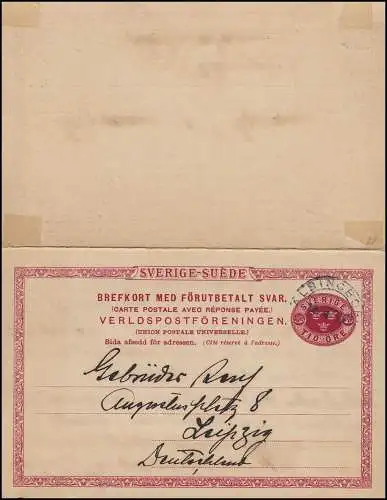 SVERIGE-SUÈDE
BREFKORT MED FÖRUTBETALT SVAR.
(CARTE POSTALE AVEC RÉPONSE PAYÉE.)
VERLDSPOSTFÖRENINGEN.
(UNION POSTALE UNIVERSELLE.)
Sida afsedd för adressen. (Côté réservé à l'adresse.)
SVERIGE
TIO ÖRE
Gebrüder
Augustusplatz 8
Leipzig
Deutschland